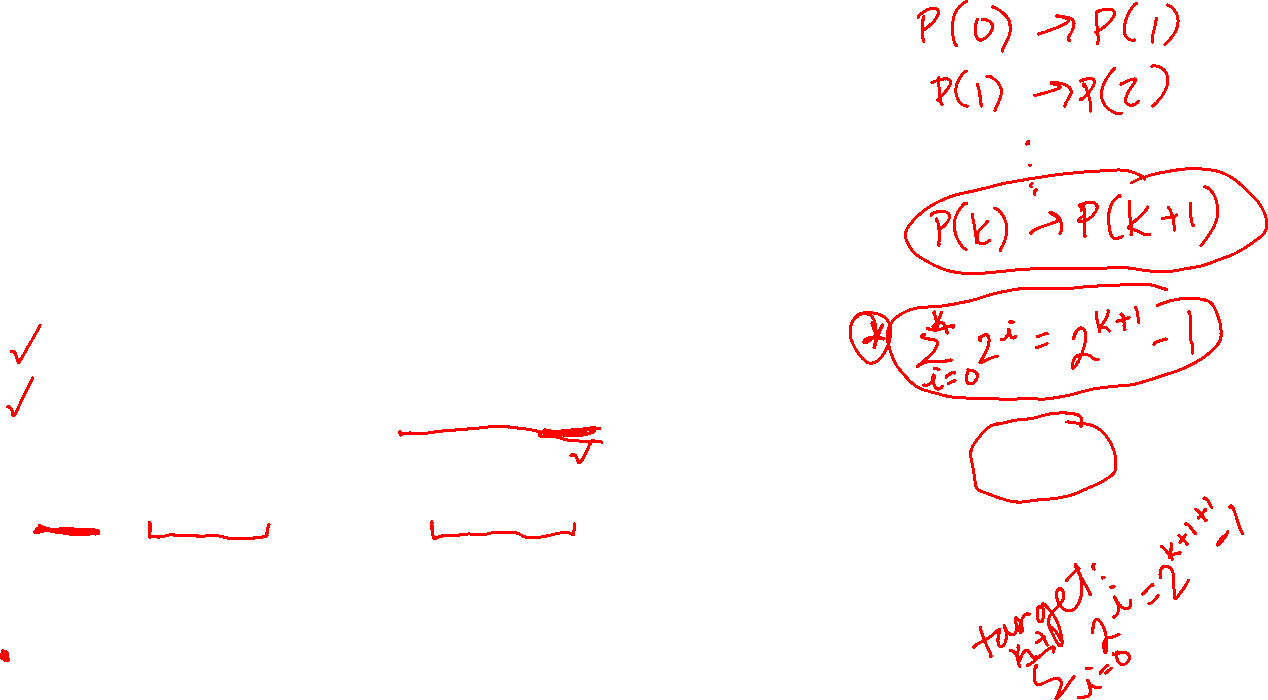 P(0) → P(1)
P(1) → P(2)
⋮
P(k) → P(k+1)
* ∑_{i=0}^{k} 2^i = 2^{k+1} - 1
target:
∑_{i=0}^{k+1} 2^i = 2^{k+1+1} - 1